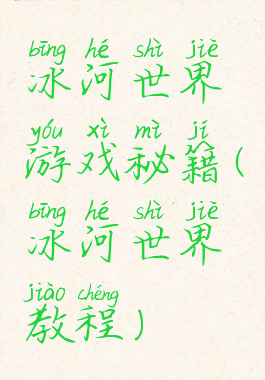 bīng hé shì jiè
冰河世界
yóu xì mì jí
游戏秘籍(
bīng hé shì jiè
冰河世界
jiào chéng
教程)